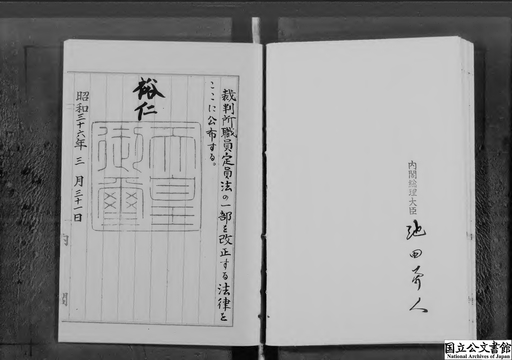 裁判所職員定員法の一部を改正する法律を
ここに公布する。
裕仁
天皇
御璽
昭和三十六年三月三十一日
内閣総理大臣
池田勇人
国立公文書館
National Archives of Japan